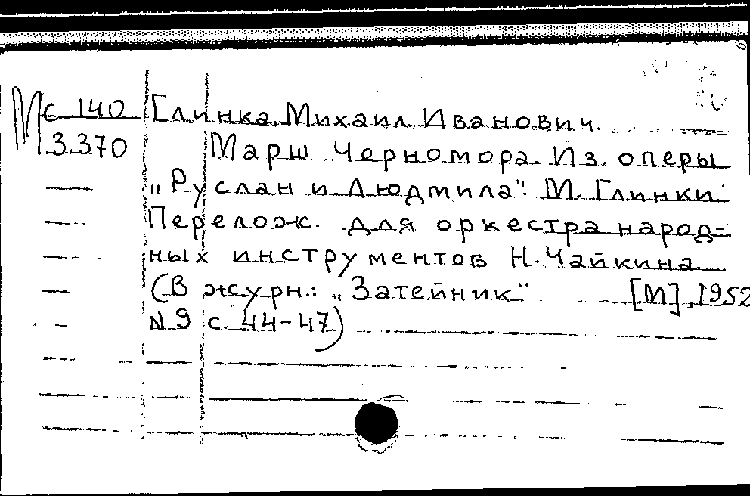 Мс 140 Глинка, Михаил Иванович.
3.370 Марш Черномора. Из оперы
„Руслан и Людмила". М. Глинки
Перелож. для оркестра народ-
ных инструментов Н. Чайкина
(В журн.: „Затейник" [М], 1952
N 9 с. 44-47)